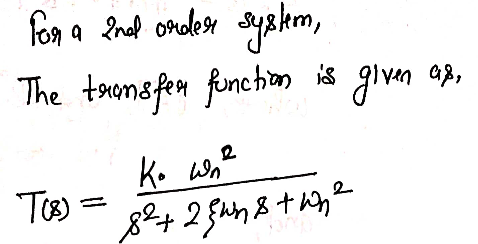 For a 2nd order system,
The transfer function is given as,
T(s) = K. ωn² / s² + 2ξωn s + ωn²